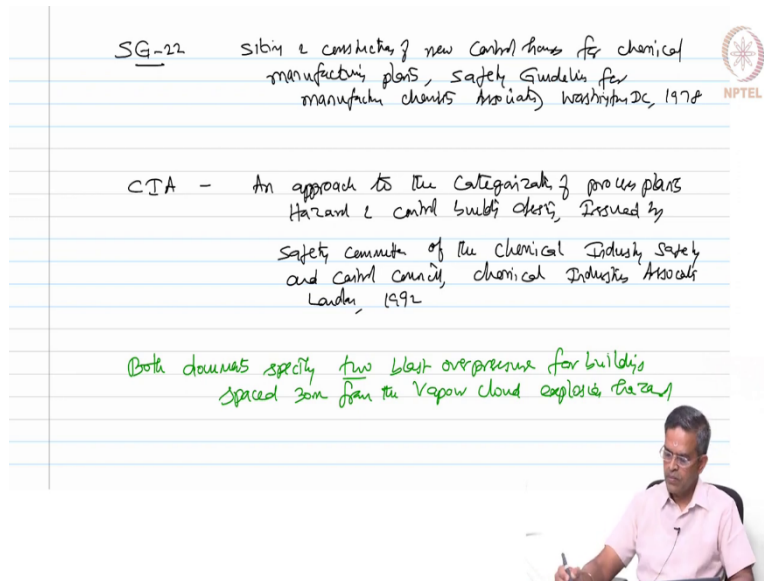 SG-22 Siting & construction of new control house for chemical
manufacturing plants, Safety Guideline for
manufacture chemists Associates, Washington DC, 1978
NPTEL
CIA - An approach to the categorization of process plants
Hazard & control building design, Issued by
Safety committee of the Chemical Industry Safety
and Control council, chemical Industries Associate
London, 1992
Both documents specify two blast overpressure for buildings
spaced 30m from the vapour cloud explosion hazard